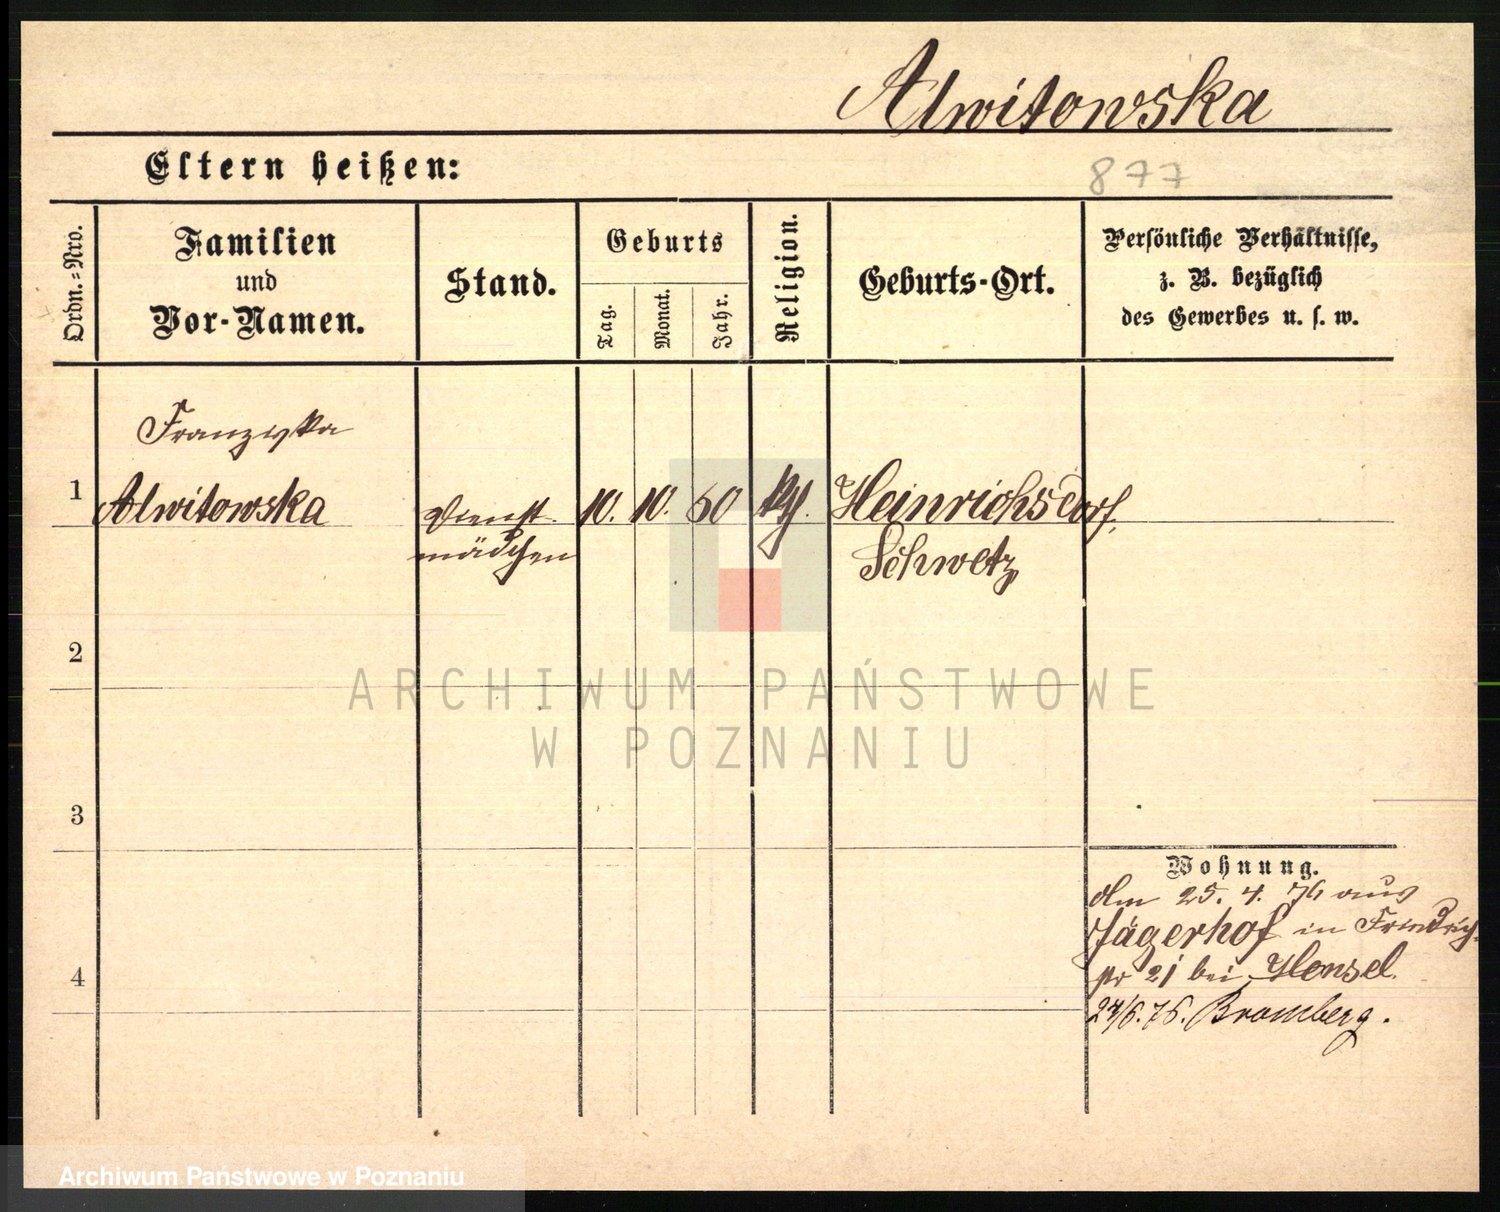 Alwitowska
Eltern heißen:
877
Ordn.-Nro.
Familien
und
Vor-Namen.
Stand.
Geburts
Tag.
Monat.
Jahr.
Religion.
Geburts-Ort.
Persönliche Verhältnisse,
z. B. bezüglich
des Gewerbes u. s. w.
Franziska
1 Alwitowska Dienst 10. 10. 50 Heinrichsdorf,
mädchen Schwetz
2
ARCHIWUM PAŃSTWOWE
W POZNANIU
3
Wohnung.
Am 25. 4. 76 aus
Jägerhof in Friedrich
str 21 bei Hensel.
4
24/6. 76. Bromberg.
Archiwum Państwowe w Poznaniu